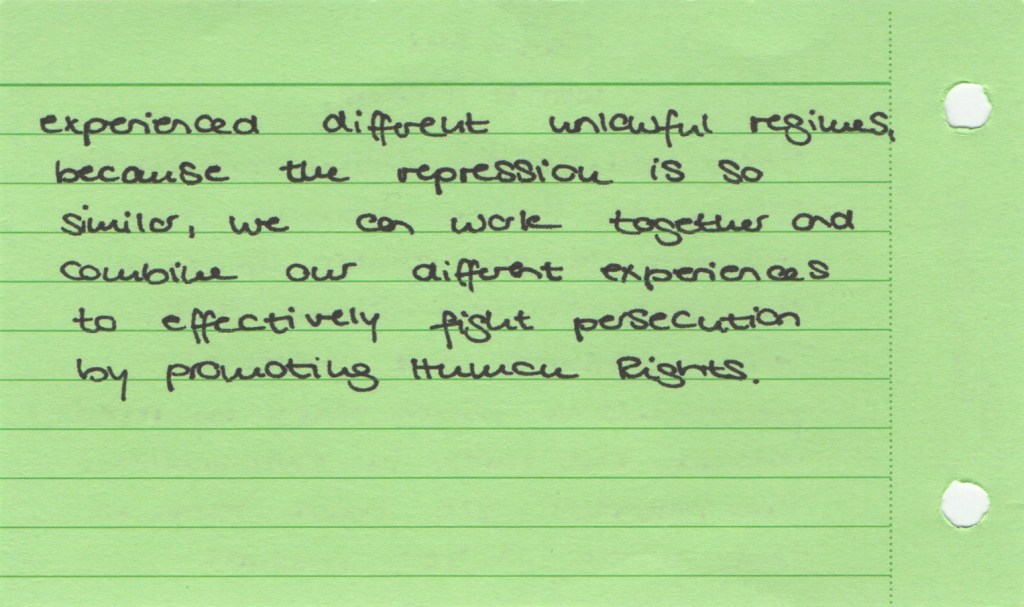 experienced different unlawful regimes,
because the repression is so
similar, we can work together and
combine our different experiences
to effectively fight persecution
by promoting Human Rights.